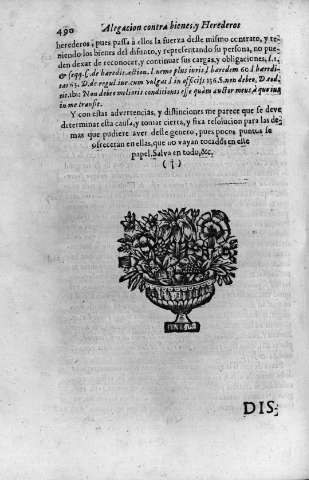 490 Alegacion contra bienes, y Herederos
herederos; pues passa à ellos la fuerza deste mismo contrato, y te-
niendo los bienes del difunto, y representando su persona, no pue-
den dexar de reconocer, y continuar sus cargas, y obligaciones,
& seqq. C. de haredit. action. l. nemo plus iuris
non debeo
Non debeo melioris conditionis esse quàm auctor meus, à quo ius
in me transit.
Y con estas advertencias, y distinciones me parece que se deve
determinar esta causa, y tomar cierta, y fixa resolucion para las de-
mas que pudiere aver deste genero, pues pocos puntos se
ofreceran en ellas, que no vayan tocados en este
papel. Salva en todo, &c.
(†)
DIS-